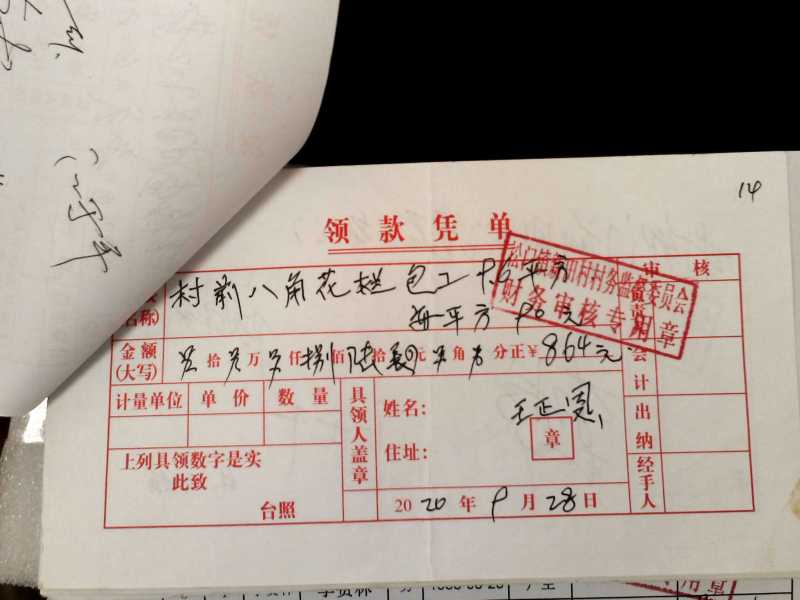 14
领款凭单
村前八角花坛包工 9.6平方
每平方 90元
名称)
审核
财务审核专用章
金额
(大写)
拾 万 仟 捌佰陆拾肆元 角 分正¥864元
会计
计量单位 单价 数量
具领人盖章
姓名: 王正凤
住址:
章
出纳
上列具领数字是实
此致
台照
2020年9月28日
经手人